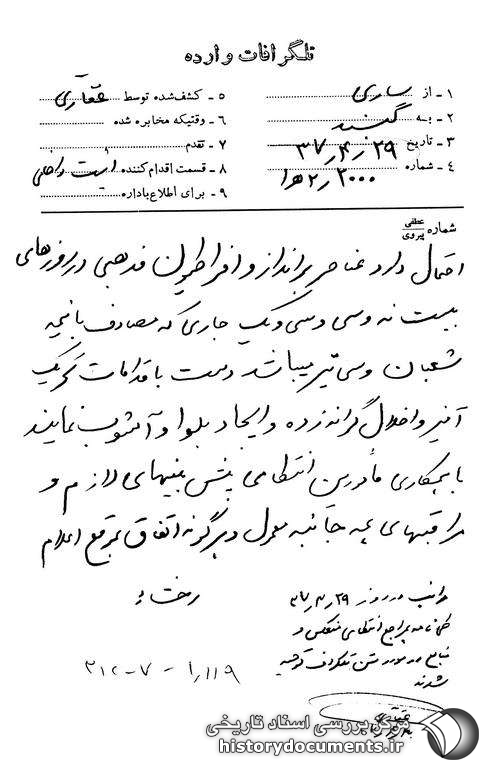 تلگرافات وارده
۱ - از ساری
۲ - به گنبد
۳ - تاریخ ۳۷٫۴٫۲۹
۴ - شماره ۲۰۰۰
۵ - کشف‌شده توسط
۶ - وقتیکه مخابره شده
۷ - تقدم
۸ - قسمت اقدام‌کننده امنیت داخلی
۹ - برای اطلاع باداره
شماره عطفی پیروی
احتمال دارد عناصر برانداز و افراطیون مذهبی در روزهای
بیست نه وسی وسی ویک جاری که مصادف با نیمه
شعبان وسی تیر میباشد دست باقدامات تحریک
آمیز و اخلال گرانه زده و ایجاد بلوا و آشوب نمایند
با همکاری مأمورین انتظامی پیش بینیهای لازم و
مراقبتهای همه جانبه معمول و هرگونه اتفاق بموقع اعلام
مراتب در روز ۳۷٫۴٫۲۹
طی نامه بمراجع انتظامی منعکس و
منابع در مورد متن تلگراف توجیه
شدند
۲۱۲-۷ - ۱٫۱۱۹
مرکز بررسی اسناد تاریخی
historydocuments.ir